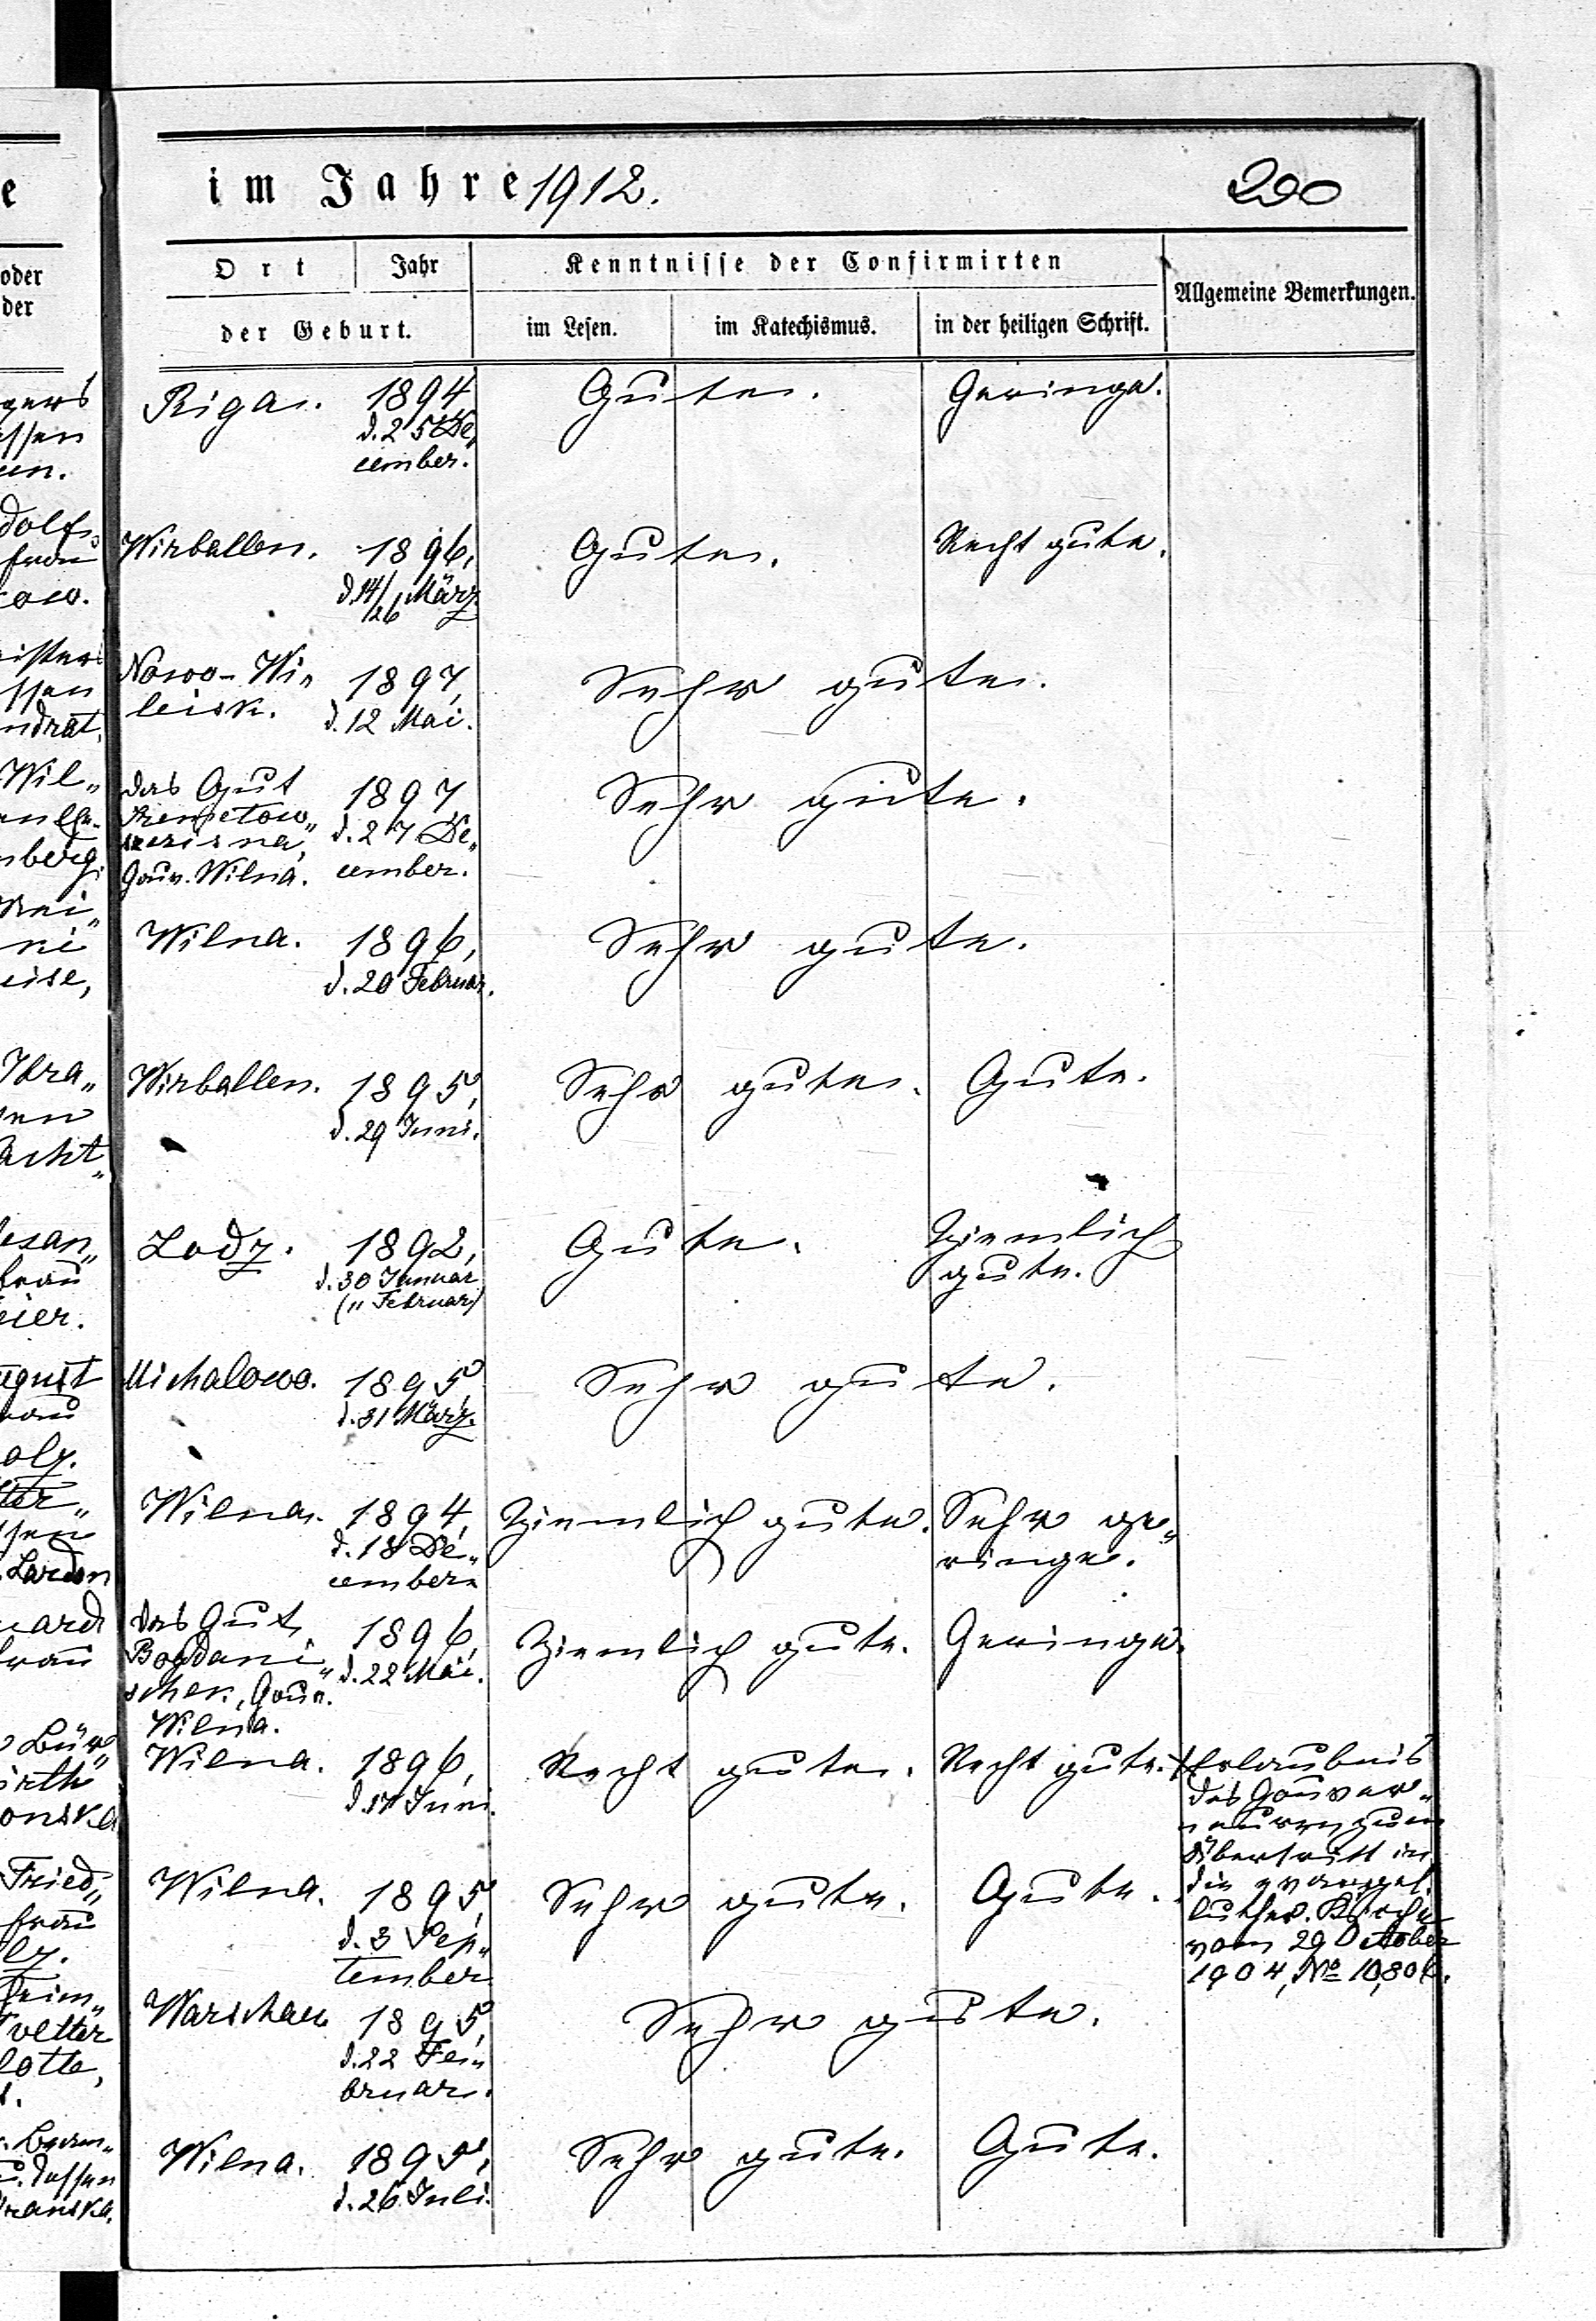 im Jahre 1912. 290
e
oder
der
Ort Jahr
der Geburt.
Kenntnisse der Confirmirten
im Lesen. im Katechismus. in der heiligen Schrift.
Allgemeine Bemerkungen.
Riga. 1894 Gute. Geringe.
d. 25 De„
cember.
Wirballen. 1896, Gute. Recht gute.
d. 14/26 März
Nowo-Wi„ 1897, Sehr gute.
leisk. d. 12 Mai.
das Gut 1897 Sehr gute.
d. 27 De„
Gouv. Wilna. cember.
Wilna. 1896, Sehr gute.
d. 20 Februar.
Wirballen. 1895, Sehr gute. Gute.
d. 29 Juni.
Lodz. 1892, Gute. Ziemlich
d. 30 Januar gute.
(11 Februar)
Michalowo. 1895, Sehr gute.
d. 31 März.
Wilna. 1894, Ziemlich gute. Sehr ge„
d. 18 De„ ringe.
cember.
das Gut 1896, Ziemlich gute. Geringe.
Bogdani„ d. 22 Mai.
schek, Gouv.
Wilna.
Wilna. 1896, Recht gute. Recht gute. Erlaubnis
d. 17 Juni. des Gouver„
neuren zum
Übertritt in
die evangel.
luther. Kirche
vom 29 October
1904, № 10,806.
Wilna. 1895, Sehr gute. Gute.
d. 3 Sep„
tember
Warschau 1895, Sehr gute.
d. 22 Fe„
bruar.
Wilna. 1895, Sehr gute. Gute.
d. 26 Juli.